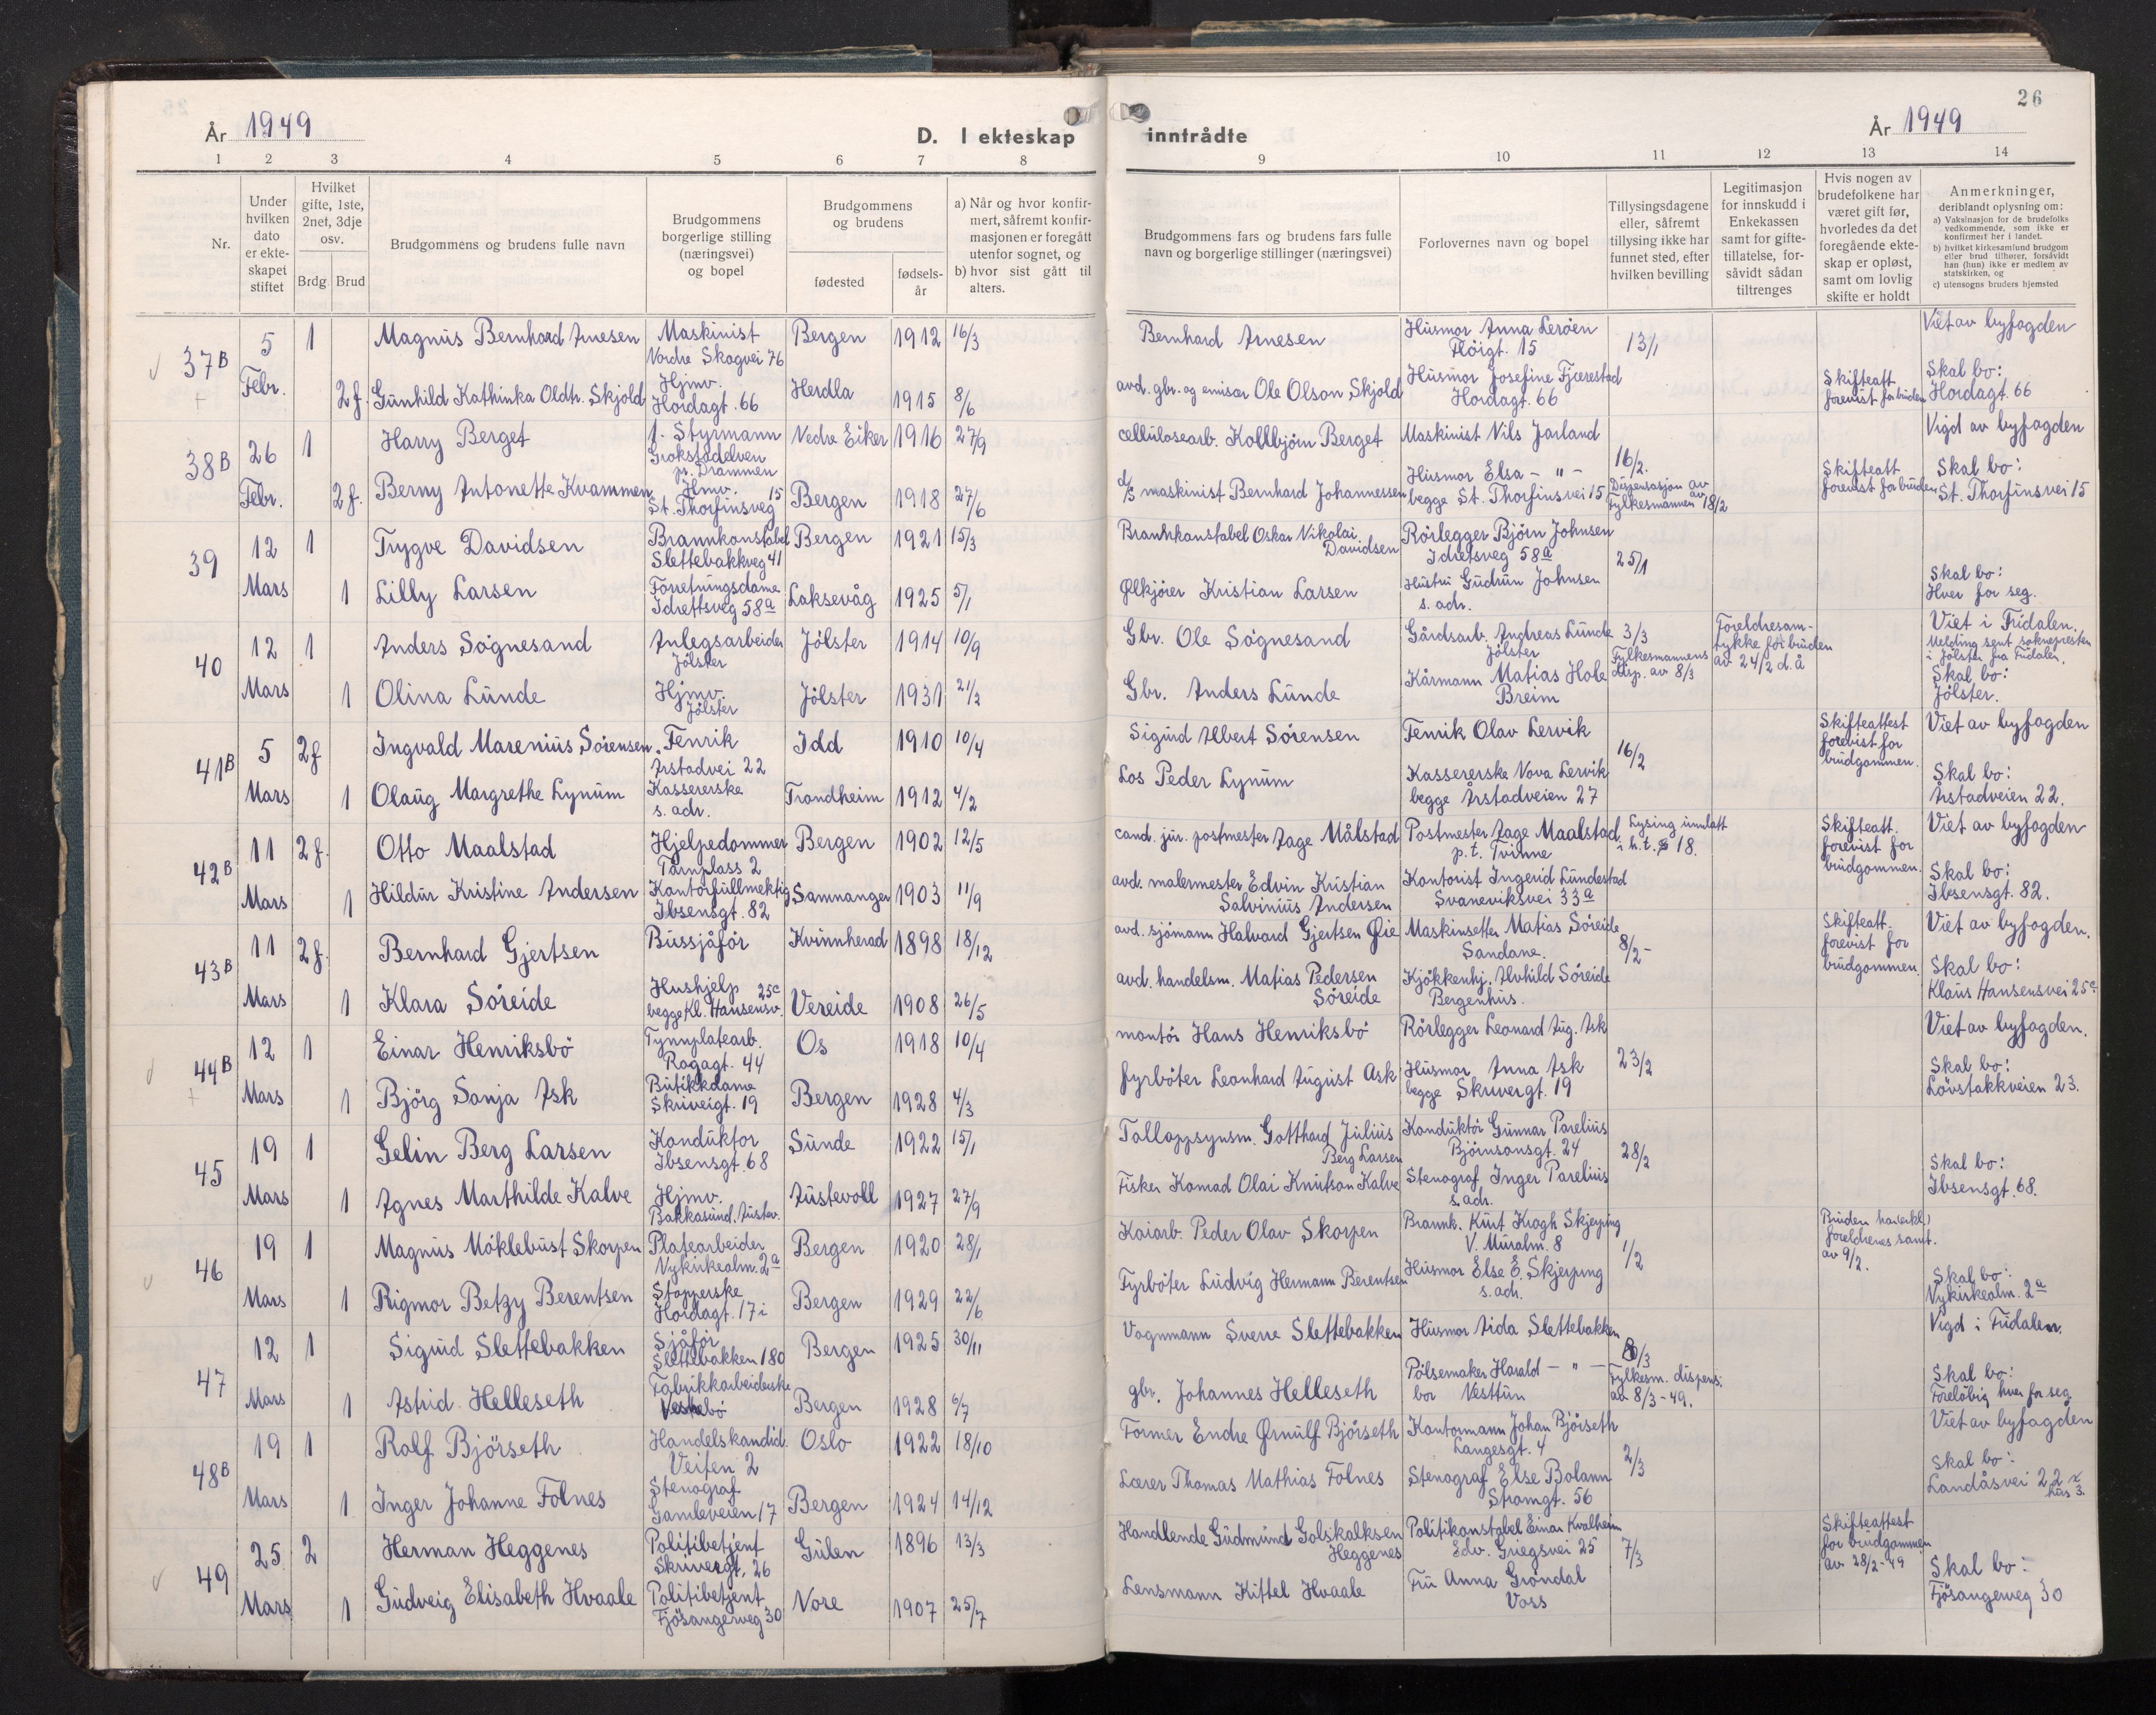 År 1949
D. I ekteskap
1 2 3 4 5 6 7 8
Nr.
Under hvilken dato er ekteskapet stiftet
Hvilket gifte, 1ste, 2net, 3dje osv.
Brdg. Brud
Brudgommens og brudens fulle navn
Brudgommens borgerlige stilling (næringsvei) og bopel
Brudgommens og brudens
fødested
fødselsår
a) Når og hvor konfirmert, såfremt konfirmasjonen er foregått utenfor sognet, og
b) hvor sist gått til alters.
37B 5 1 Magnus Bernhard Arnesen Maskinist Bergen 1912 16/3
Nordre Skogvei 76
Febr. 2f. Gunhild Kathinka Oldtr. Skjold Hjmv. Herdla 1915 8/6
Hordagt. 66
38B 26 1 Harry Berget 1. Styrmann Nedre Eiker 1916 27/9
Grokstadelven
pr. Drammen
Febr. 2f. Berny Antonette Kvammen Hjmv. 15 Bergen 1918 27/6
St. Thorfinsveg
39 12 1 Trygve Davidsen Brannkonstabel Bergen 1921 15/3
Slettebakkveg 41
Mars 1 Lilly Larsen Forretningsdame Laksevåg 1925 5/1
Idrettsveg 58a
40 12 1 Anders Søgnesand Anlegsarbeider Jølster 1914 10/9
Jølster
Mars 1 Olina Lunde Hjmv. Jølster 1931 21/2
Jølster
41B 5 2f Ingvald Marenius Sørensen Fenrik Idd 1910 10/4
Årstadvei 22
Mars 1 Olaug Margrethe Lynum Kassererske Trondheim 1912 4/2
s. adr.
42B 11 2f. Otto Maalstad Hjelpedommer Bergen 1902 12/5
Tårnplass 2
Mars 1 Hildur Kristine Andersen Kontorfullmektig Samnanger 1903 11/9
Ibsensgt. 82
43B 11 2f. Bernhard Gjertsen Bussjåfør Kvinnherad 1898 18/12
Mars 1 Klara Søreide Hushjelp 25c Vereide 1908 26/5
begge Kl. Hansensv.
44B 12 1 Einar Henriksbø Tynnplatearb. Os 1918 10/4
Rogagt. 44
Mars 1 Bjørg Sonja Ask Butikkdame Bergen 1928 4/3
Skriveigt. 19
45 19 1 Gelin Berg Larsen Konduktør Sunde 1922 15/1
Ibsensgt. 68
Mars 1 Agnes Marthilde Kalve Hjmv. Austevoll 1927 27/9
Bakkasund, Austev.
46 19 1 Magnus Møklebust Skorpen Platearbeider Bergen 1920 28/1
Nykirkealm. 2a
Mars 1 Rigmor Betzy Berentsen Stopperske Bergen 1929 22/6
Hordagt. 17 i
47 12 1 Sigurd Slettebakken Sjåfør Bergen 1925 30/11
Slettebakken 180
Mars 1 Astrid Helleseth Fabrikkarbeiderske Bergen 1928 6/7
48B 19 1 Rolf Bjørseth Handelskandid. Oslo 1922 18/10
Veiten 2
Mars 1 Inger Johanne Folnes Stenograf Bergen 1924 14/12
Gamleveien 17
49 25 2 Herman Heggenes Politibetjent Gulen 1896 13/3
Skrivergt. 26
Mars 1 Gudveig Elisabeth Hvaale Politibetjent Nore 1907 25/7
Fjøsangerveg 30
26
inntrådte
År 1949
9 10 11 12 13 14
Brudgommens fars og brudens fars fulle navn og borgerlige stillinger (næringsvei)
Forlovernes navn og bopel
Tillysingsdagene eller, såfremt tillysing ikke har funnet sted, efter hvilken bevilling
Legitimasjon for innskudd i Enkekassen samt for giftetillatelse, forsåvidt sådan tiltrenges
Hvis nogen av brudefolkene har været gift før, hvorledes da det foregående ekteskap er opløst, samt om lovlig skifte er holdt
Anmerkninger, deriblandt oplysning om:
a) Vaksinasjon for de brudefolks vedkommende, som ikke er konfirmert her i landet.
b) hvilket kirkesamfund brudgom eller brud tilhører, forsåvidt han (hun) ikke er medlem av statskirken, og
c) utensogns bruders hjemsted
Bernhard Arnesen Husmor Anna Lerøen 13/1 Viet av byfogden
Fløigt. 15
avd. gbr. og emisær Ole Olson Skjold Husmor Josefine Fjærestad Skifteatt. Skal bo:
Hordagt. 66 forevist for bruden Hordagt. 66
cellulosearb. Kollbjørn Berget Maskinist Nils Jarland 16/2. Vigd av byfogden
d/s maskinist Bernhard Johannessen Husmor Elsa – " – Dispensasjon av Skifteatt. Skal bo:
begge St. Thorfinsvei 15 Fylkesmannen av 18/2 forevist for bruden St. Thorfinsvei 15
Brannkonstabel Oskar Nikolai Davidsen Rørlegger Bjørn Johnsen 25/1
Idretsveg 58a
Ølkjører Kristian Larsen Hustru Gudrun Johnsen Skal bo:
s. adr. Hver for seg.
Gbr. Ole Søgnesand Gårdsarb. Andreas Lunde 3/3 Foreldresamtykke for bruden Viet i Fridalen.
Jølster Fylkesmannens av 24/2 d.å Melding sent soknepresten
disp. av 8/3 i Jølster fra Fridalen.
Gbr. Anders Lunde Kårmann Matias Hole Skal bo:
Breim Jølster.
Sigurd Albert Sørensen Fenrik Olav Lervik 16/2 Skifteattest forevist for brudgommen. Viet av byfogden
Los Peder Lynum Kassererske Nova Lervik Skal bo:
begge Årstadveien 27 Årstadveien 22.
cand. jur. postmester Aage Målstad Postmester Aage Maalstad Lysing unnlatt Skifteatt. Viet av byfogden
p.t. Tvinne i h.t. § 18. forevist for brudgommen.
avd. malermester Edvin Kristian Salvinius Andersen Kontorist Ingerid Lundestad Skal bo:
Svaneviksvei 33a Ibsensgt. 82.
avd. sjømann Halvard Gjertsen Øie Maskinsetter Matias Søreide 8/2 – Skifteatt. Viet av byfogden.
Sandane. forevist for brudgommen.
avd. handelsm. Matias Pedersen Søreide Kjøkkenhj. Alvhild Søreide Skal bo:
Bergenhus. Klaus Hansensvei 25c
montør Hans Henriksbø Rørlegger Leonard Aug. Ask 23/2 Viet av byfogden.
fyrbøter Leonhard August Ask Husmor Anna Ask Skal bo:
begge Skrivergt. 19 Løvstakkveien 23.
Tolloppsynsm. Gotthard Julius Berg Larsen Konduktør Gunnar Parelius 28/2
Bjørnsonsgt. 24
Fisker Konrad Olai Knutson Kalve Stenograf Inger Parelius Skal bo:
s. adr. Ibsensgt. 68.
Kaiarb. Peder Olav Skorpen Brannk. Kurt Krogh Skjerping 1/2
V. Muralm. 8 foreldrenes samt. av 9/2.
Fyrbøter Ludvig Hermann Berentsen Husmor Else E. Skjerping Skal bo:
s. adr. Nykirkealm. 2a
Vognmann Sverre Slettebakken Husmor Aida Slettebakken Vigd i Fridalen.
gbr. Johannes Helleseth Pølsemaker Harald – " – Fylkesm. dispens. Skal bo:
bor Nesttun av 8/3-49. Foreløbig hver for seg.
Former Endre Ørnulf Bjørseth Kontormann Johan Bjørseth 2/3 Viet av byfogden
Langesgt. 4
Lærer Thomas Mathias Folnes Stenograf Else Bolann Skal bo:
Strømgt. 56 Landåsvei 22 hus 3.
Handlende Gudmund Golskalksen Heggenes Politikonstabel Einar Kvalheim 7/3 Skifteattest
Edv. Griegsvei 25 for brudgommen av 28/2-49
Lensmann Kittel Hvaale Fru Anna Grøndal Skal bo:
Voss Fjøsangerveg 30